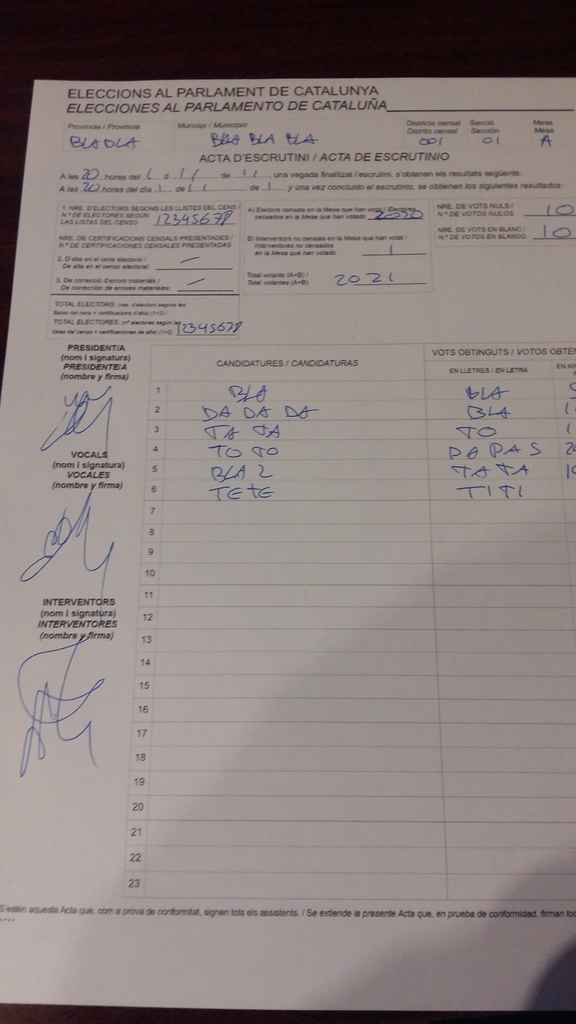 ELECCIONS AL PARLAMENT DE CATALUNYA
ELECCIONES AL PARLAMENTO DE CATALUÑA
Província / Provincia
Municipi / Municipio
Districte censal
Distrito censal
Secció
Sección
Mesa
Mesa
BLA BLA BLA
001
01
A
ACTA D'ESCRUTINI / ACTA DE ESCRUTINIO
A les 20 hores del
de
, una vegada finalitzat l'escrutini, s'obtenen els resultats següents:
A las 20 horas del día 1 de
de
y una vez concluido el escrutinio, se obtienen los siguientes resultados:
1. NRE. D'ELECTORS SEGONS LES LLISTES DEL CENS /
N.º DE ELECTORES SEGÚN
LAS LISTAS DEL CENSO
12345678
NRE. DE CERTIFICACIONS CENSALS PRESENTADES /
N.º DE CERTIFICACIONES CENSALES PRESENTADAS
2. D'alta en el cens electoral /
De alta en el censo electoral:
3. De correcció d'errors materials /
De corrección de errores materiales:
TOTAL ELECTORS
TOTAL ELECTORES
12345678
A) Electors censats en la Mesa que han votat / Electores
censados en la Mesa que han votado
B) Interventors no censats en la Mesa que han votat /
Interventores no censados
en la Mesa que han votado
1
Total votants (A+B) /
Total votantes (A+B)
2021
NRE. DE VOTS NULS /
N.º DE VOTOS NULOS
10
NRE. DE VOTS EN BLANC /
N.º DE VOTOS EN BLANCO
10
PRESIDENT/A
(nom i signatura)
PRESIDENTE/A
(nombre y firma)
VOCALS
(nom i signatura)
VOCALES
(nombre y firma)
INTERVENTORS
(nom i signatura)
INTERVENTORES
(nombre y firma)
CANDIDATURES / CANDIDATURAS
VOTS OBTINGUTS / VOTOS OBTEN
EN LLETRES / EN LETRA
1 BLA BLA
2 DA DA DA BLA
3 TA TA TO
4 TO TO PAPAS
5 BLA 2 TATA
6 TETE TITI
7
8
9
10
11
12
13
14
15
16
17
18
19
20
21
22
23
S'estén aquesta Acta que, com a prova de conformitat, signen tots els assistents. / Se extiende la presente Acta que, en prueba de conformidad, firman